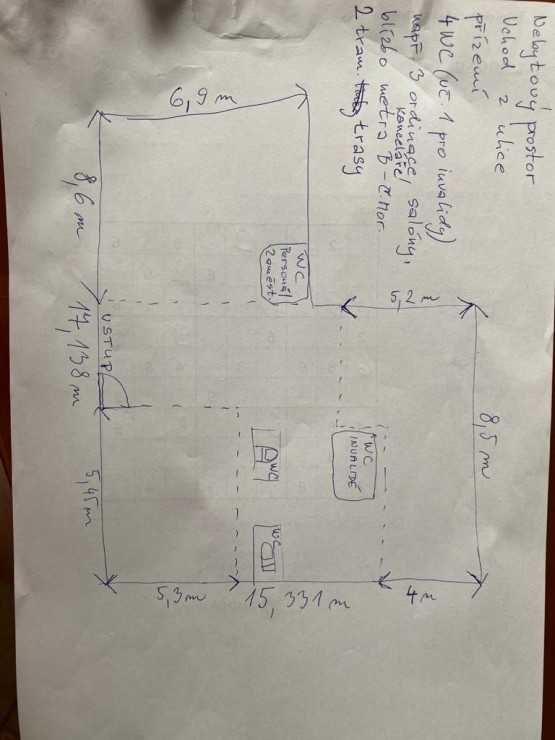 Nebytový prostor
Vchod z ulice
přízemí
4 WC (vč. 1 pro invalidy)
např. 3 ordinace, salóny,
kanceláře
blízko metra B - Č. Mor.
2 tram. trasy
6,9 m
8,6 m
WC
Personál
Zaměst.
5,2 m
VSTUP
17,138 m
8,5 m
WC
INVALIDÉ
WC
WC
5,45 m
5,3 m
15,331 m
4 m